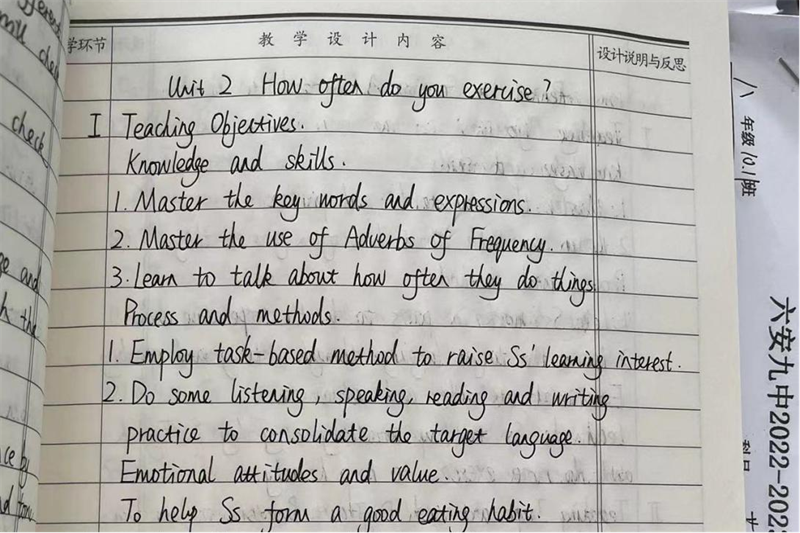 offered
check
check
and
the
by
and
学环节
教学设计内容
设计说明与反思
Unit 2 How often do you exercise?
I Teaching Objectives.
Knowledge and skills.
1. Master the key words and expressions.
2. Master the use of Adverbs of Frequency.
3. Learn to talk about how often they do things
Process and methods.
1. Employ task-based method to raise Ss' learning interest.
2. Do some listening, speaking, reading and writing
practice to consolidate the target language.
Emotional attitudes and value.
To help Ss form a good eating habit.
八年级10.1班
六安九中2022-202